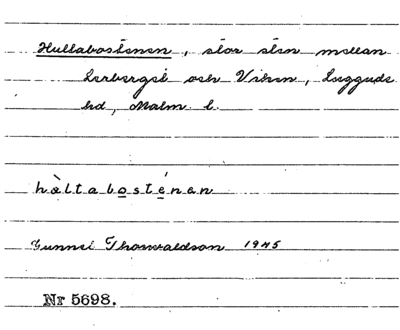 Hultabostenen, stor sten mellan
Lerberget och Viken, Luggude
hd, Malm. l.
hàltabosténan
Gunnel Thorvaldson 1945
Nr 5698.